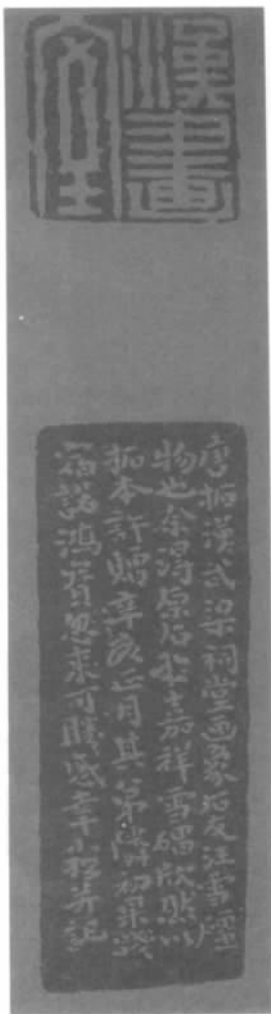 漢畫室
唐拓漢武梁祠堂画象石友汪雪礓
物也余得原石於嘉祥雪礓欣然以
拓本許贈辛亥正月其弟隣初果踐
宿諾鴻寶忽來可勝感幸小松并記